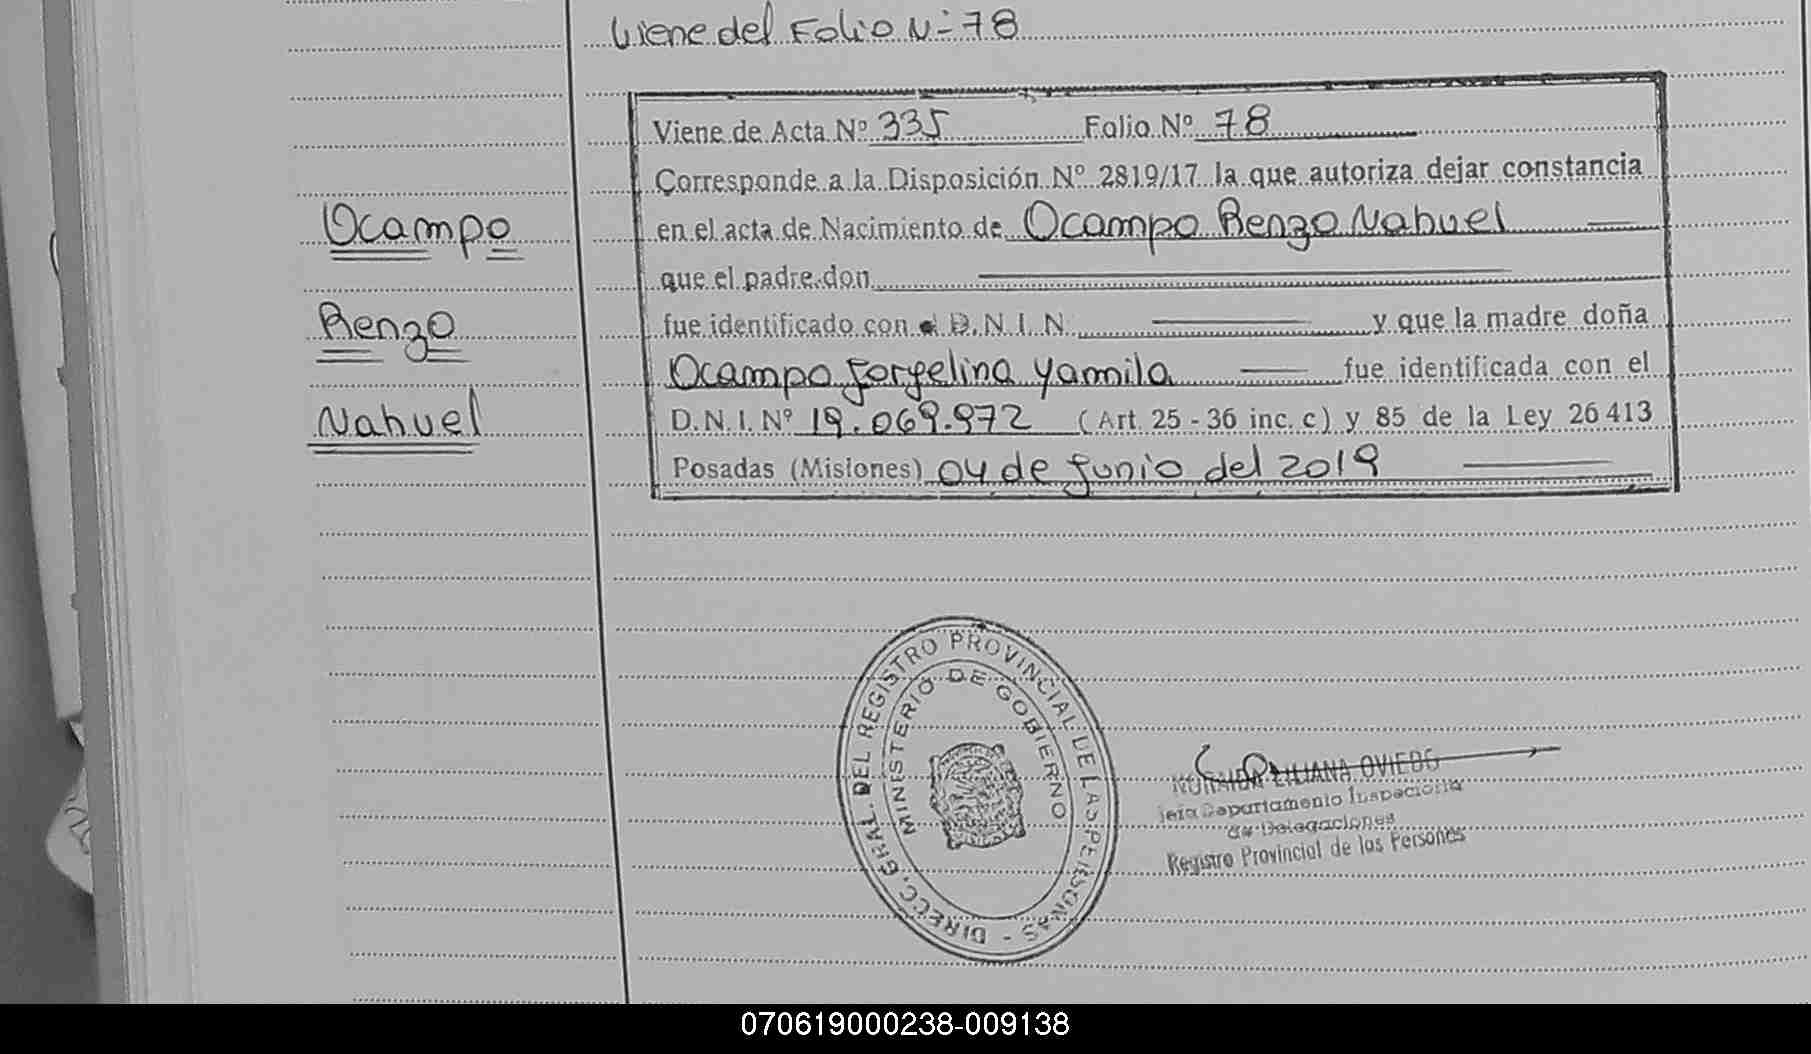 Viene del Folio N= 78
Viene de Acta Nº 335 Folio Nº 78
Corresponde a la Disposición Nº 2819/17 la que autoriza dejar constancia
en el acta de Nacimiento de Ocampo Renzo Nahuel
que el padre don
fue identificado con D.N.I.N. y que la madre doña
Ocampo Jorgelina Yamila fue identificada con el
D.N.I. Nº 19.069.972 (Art. 25 - 36 inc. c) y 85 de la Ley 26413
Posadas (Misiones) 04 de Junio del 2019
Ocampo
Renzo
Nahuel
DIRECC. GRAL. DEL REGISTRO PROVINCIAL DE LAS PERSONAS -
MINISTERIO DE GOBIERNO
LILIANA OVIEDO
Jefa Departamento Inspectoria
de Delegaciones
Registro Provincial de las Personas
070619000238-009138